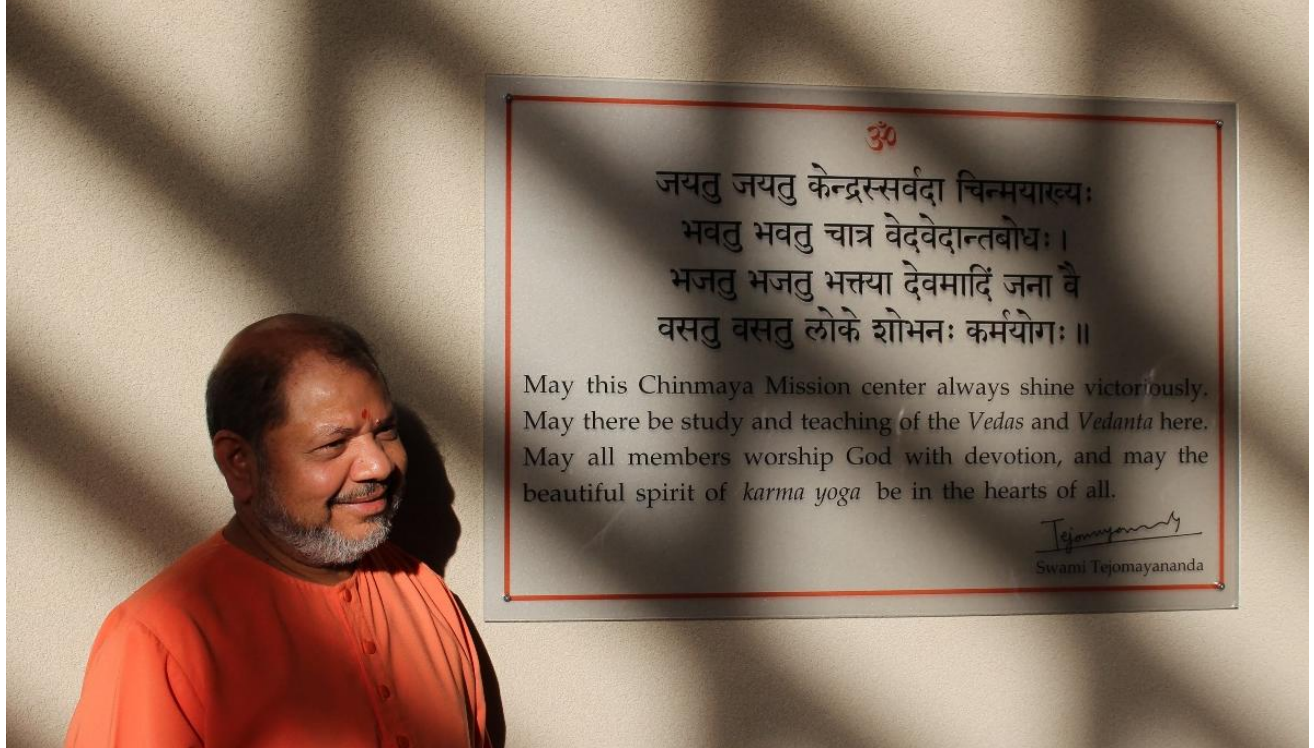 ॐ
जयतु जयतु केन्द्रस्सर्वदा चिन्मयाख्यः
भवतु भवतु चात्र वेदवेदान्तबोधः।
भजतु भजतु भक्त्या देवमादिं जना वै
वसतु वसतु लोके शोभनः कर्मयोगः॥
May this Chinmaya Mission center always shine victoriously.
May there be study and teaching of the Vedas and Vedanta here.
May all members worship God with devotion, and may the
beautiful spirit of karma yoga be in the hearts of all.
Tejomayananda
Swami Tejomayananda